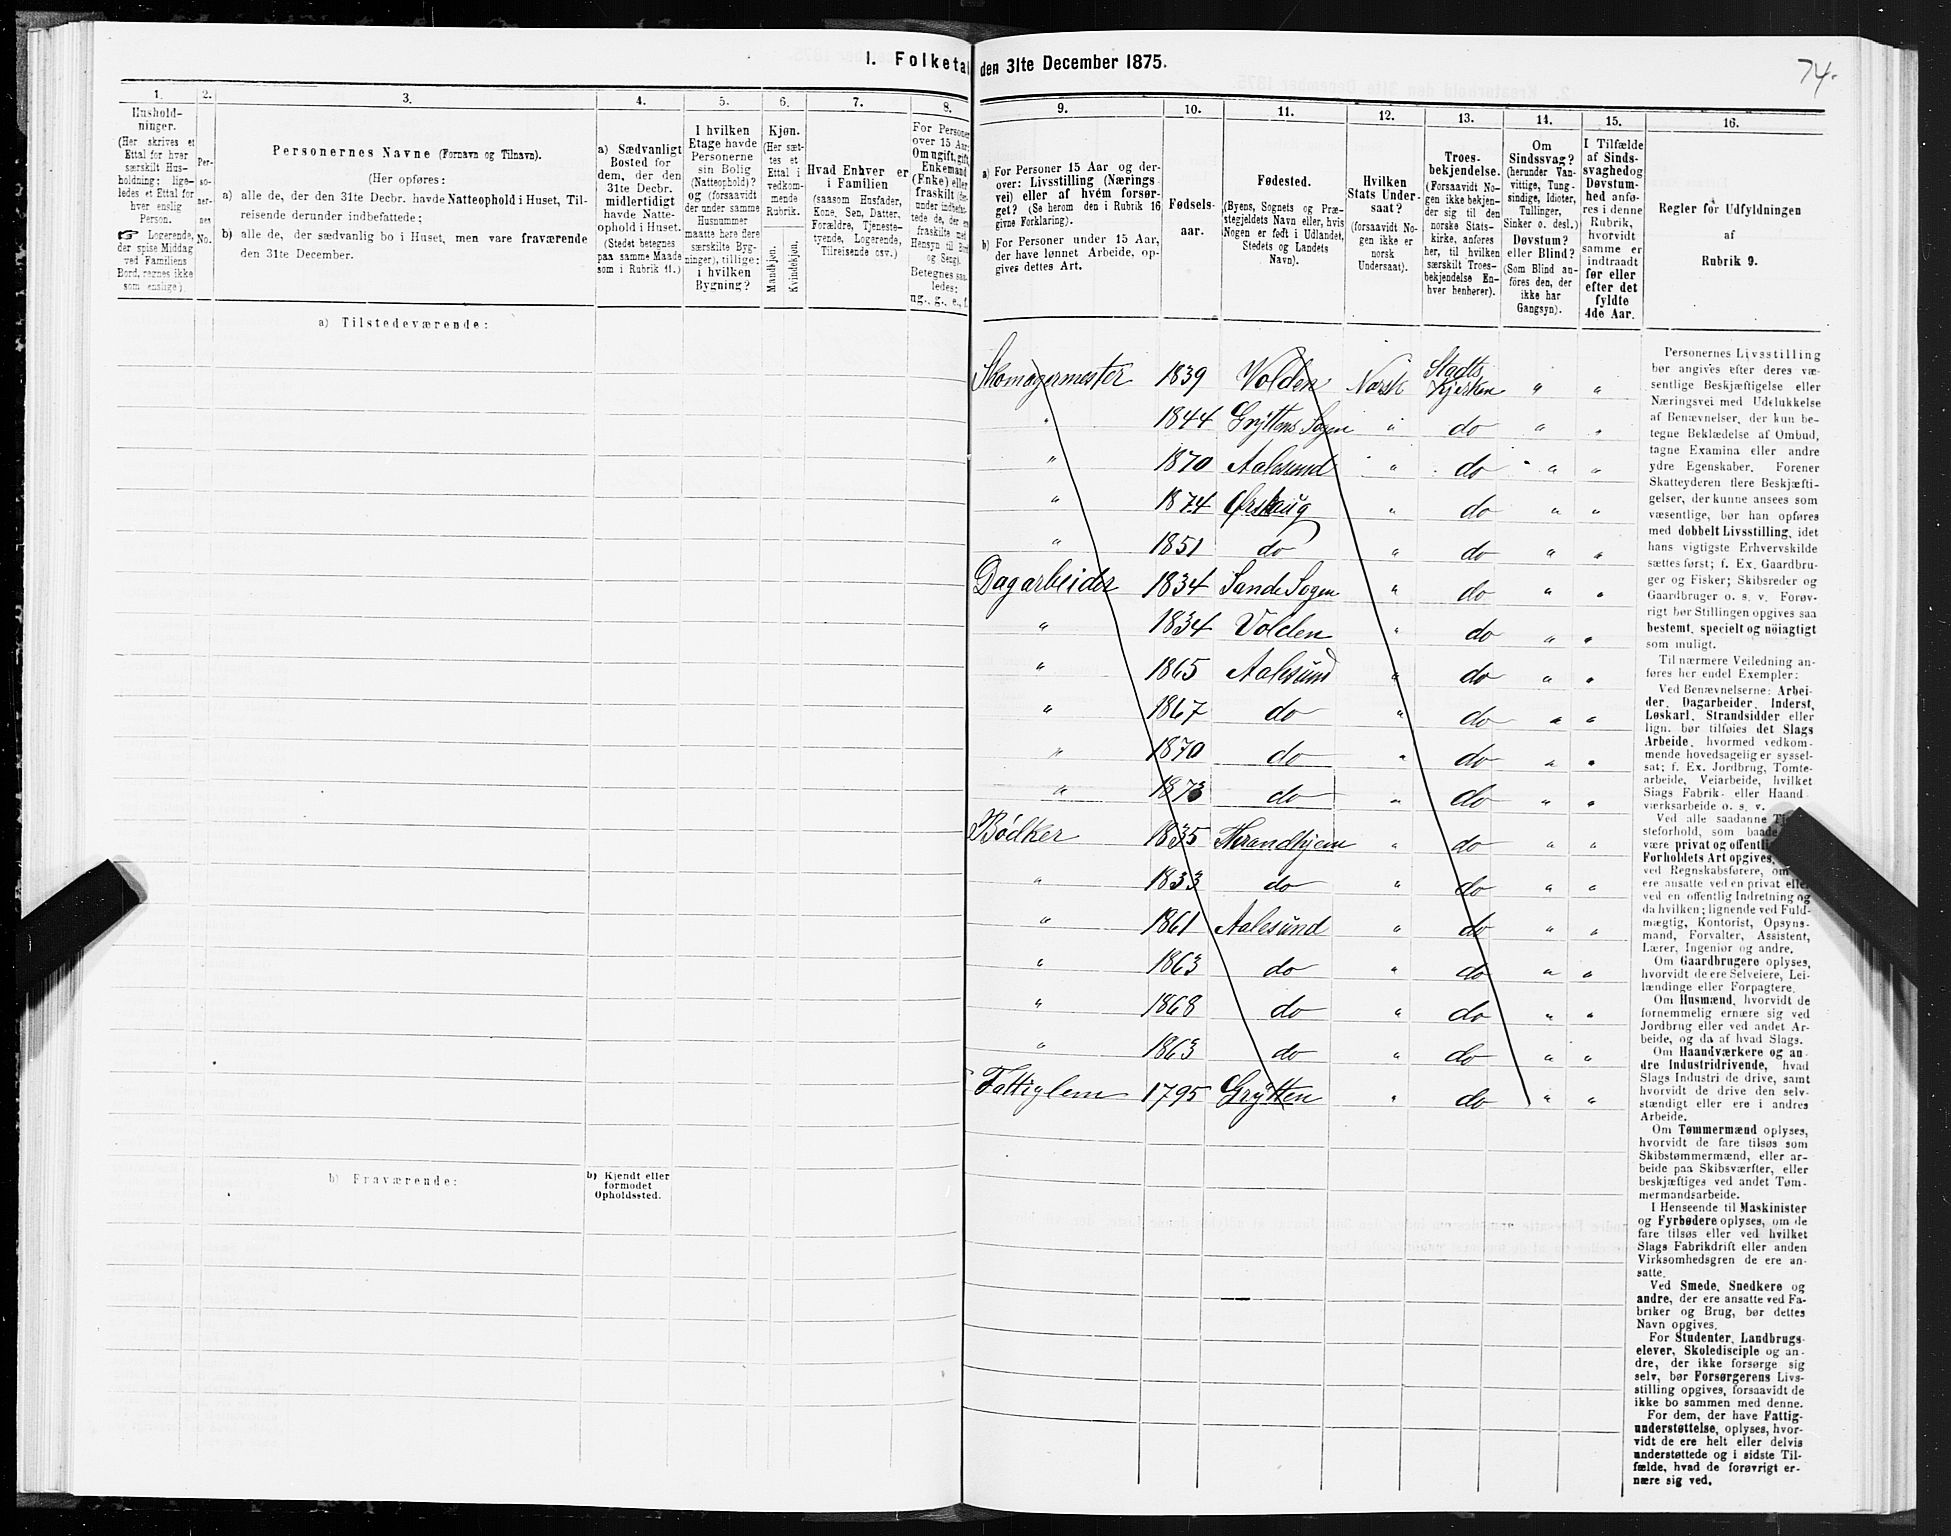 1. Folketal den 31te December 1875.
74.
1.
2.
3.
4.
5.
6.
7.
8.
Hushold-
ninger.
(Her skrives et
Ettal for hver
særskilt Hus-
holdning; lige-
ledes et Ettal for
hver enslig
Person.
Logerende,
der spise Middag
ved Familiens
Bord, regnes ikke
som enslige).
Per-
so-
ner-
nes
No.
Personernes Navne (Fornavn og Tilnavn).
(Her opføres:
a) alle de, der den 31te Decbr. havde Natteophold i Huset, Til-
reisende derunder indbefattede;
b) alle de, der sædvanlig bo i Huset, men vare fraværende
den 31te December.
a) Sædvanligt
Bosted for
dem, der den
31te Decbr.
midlertidigt
havde Natte-
ophold i Huset.
(Stedet betegnes
paa samme Maade
som i Rubrik 11.)
I hvilken
Etage havde
Personerne
sin Bolig
(Natteophold)?
og (forsaavidt
der under samme
Husnummer
maatte høre flere
særskilte Byg-
ninger), tillige:
i hvilken
Bygning?
Kjøn.
(Her sæt-
tes et
Ettal i
vedkom-
mende
Rubrik.
Mandkjøn.
Kvindekjøn.
Hvad Enhver er
i Familien
(saasom Husfader,
Kone, Søn, Datter,
Forældre, Tjeneste-
tyende, Logerende,
Tilreisende osv.)
For Personer
over 15 Aar:
Om ugift, gift,
Enkemand
(Enke) eller
fraskilt
Betegnes saa-
ledes:
ug., g., e., f.
a) Tilstedeværende:
b) Fraværende:
b) Kjendt eller
formodet
Opholdssted.
9.
10.
11.
12.
13.
14.
15.
16.
a) For Personer 15 Aar og der-
over: Livsstilling (Nærings-
vei) eller af hvem forsør-
get? (Se herom den i Rubrik 16
givne Forklaring).
b) For Personer under 15 Aar,
der have lønnet Arbeide, op-
gives dettes Art.
Fødsels-
aar.
Fødested.
(Byens, Sognets og Præ-
stegjeldets Navn eller, hvis
Nogen er født i Udlandet,
Stedets og Landets
Navn).
Hvilken
Stats Under-
saat?
(forsaavidt No-
gen ikke er
norsk
Undersaat).
Troes-
bekjendelse.
(Forsaavidt No-
gen ikke bekjen-
der sig til den
norske Stats-
kirke, anføres
her, til hvilken
særskilt Troes-
bekjendelse En-
hver henhører).
Om
Sindssvag?
(herunder Van-
vittige, Tung-
sindige, Idioter,
Tullinger,
Sinker o. desl.)
Døvstum?
eller Blind?
(Som Blind an-
føres den, der
ikke har
Gangsyn).
I Tilfælde
af Sinds-
svaghed og
Døvstum-
hed anfø-
res i denne
Rubrik,
hvorvidt
samme er
indtraadt
før eller
efter det
fyldte
4de Aar.
Regler for Udfyldningen
af
Rubrik 9.
Skomagermester 1839 Volden Norsk Stadts Kjerken " "
" 1844 Gryttens Sogn " do " "
" 1870 Aalesund " do " "
" 1874 Ørskaug " do " "
" 1851 do " do " "
Dagarbeider 1834 Sande Sogn " do " "
" 1834 Volden " do " "
" 1865 Aalesund " do " "
" 1867 do " do " "
" 1870 do " do " "
" 1873 do " do " "
Bödker 1835 " do " "
" 1833 do " do " "
" 1861 Aalesund " do " "
" 1863 do " do " "
" 1868 do " do " "
" 1863 do " do " "
Fattiglem 1795 Grytten " do " "
Personernes Livsstilling
bør angives efter deres væ-
sentlige Beskjæftigelse eller
Næringsvei med Udelukkelse
af Benævnelser, der kun be-
tegne Beklædelse af Ombud,
tagne Examina eller andre
ydre Egenskaber. Forener
Skatteyderen flere Beskjæfti-
gelser, der kunne ansees som
væsentlige, bør han opføres
med dobbelt Livsstilling, idet
hans vigtigste Erhvervskilde
sættes først; f. Ex. Gaardbru-
ger og Fisker; Skibsreder og
Gaardbruger o. s. v. Forøv-
rigt bør Stillingen opgives saa
bestemt, specielt og nöiagtigt
som muligt.
Til nærmere Veiledning an-
føres her endel Exempler:
Ved Benævnelserne: Arbei-
der, Dagarbeider, Inderst,
Løskarl, Strandsidder eller
lign. bør tilføies det Slags
Arbeide, hvormed vedkom-
mende hovedsagelig er syssel-
sat; f. Ex. Jordbrug, Tomte-
arbeide, Veiarbeide, hvilket
Slags Fabrik- eller Haand-
værksarbeide o. s. v.
Ved alle saadanne
steforhold, som baade
være privat og offentlig
Forholdets Art opgives,
ved Regnskabsførere, om
ere ansatte ved en privat eller
ved en offentlig Indretning og
da hvilken; lignende ved Fuld-
mægtig, Kontorist, Opsyns-
mand, Forvalter, Assistent,
Lærer, Ingeniør og andre.
Om Gaardbrugere oplyses,
hvorvidt de ere Selveiere, Lei-
lændinge eller Forpagtere.
Om Husmænd, hvorvidt de
fornemmelig ernære sig ved
Jordbrug eller ved andet Ar-
beide, og da af hvad Slags.
Om Haandværkere og an-
dre Industridrivende, hvad
Slags Industri de drive, samt
hvorvidt de drive den selv-
stændigt eller ere i andres
Arbeide.
Om Tømmermænd oplyses,
hvorvidt de fare tilsøs som
Skibstømmermænd, eller ar-
beide paa Skibsværfter, eller
beskjæftiges ved andet Tøm-
mermandsarbeide.
I Henseende til Maskinister
og Fyrbødere oplyses, om de
fare tilsøs eller ved hvilket
Slags Fabrikdrift eller anden
Virksomhedsgren de ere an-
satte.
Ved Smede, Snedkere og
andre, der ere ansatte ved Fa-
briker og Brug, bør dettes
Navn opgives.
For Studenter, Landbrugs-
elever, Skoledisciple og an-
dre, der ikke forsørge sig
selv, bør Forsørgerens Livs-
stilling opgives, forsaavidt de
ikke bo sammen med denne.
For dem, der have Fattig-
understøttelse, oplyses, hvor-
vidt de ere helt eller delvis
understøttede og i sidste Til-
fælde, hvad de forøvrigt er-
nære sig ved.